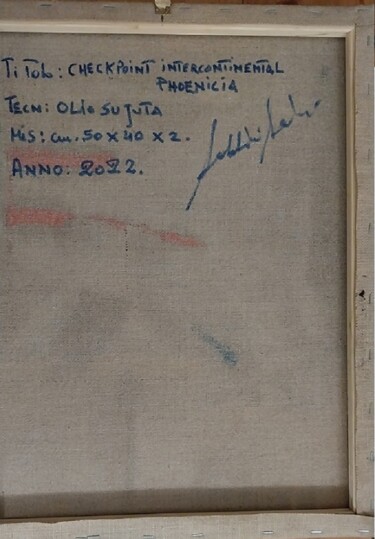 TiTolo: CHECKPOINT INTERCONTIMENTAL
PHOENICIA
TECN: OLIO SU JUTA
MIS: cm. 50 x 40 x 2.
ANNO: 2022.